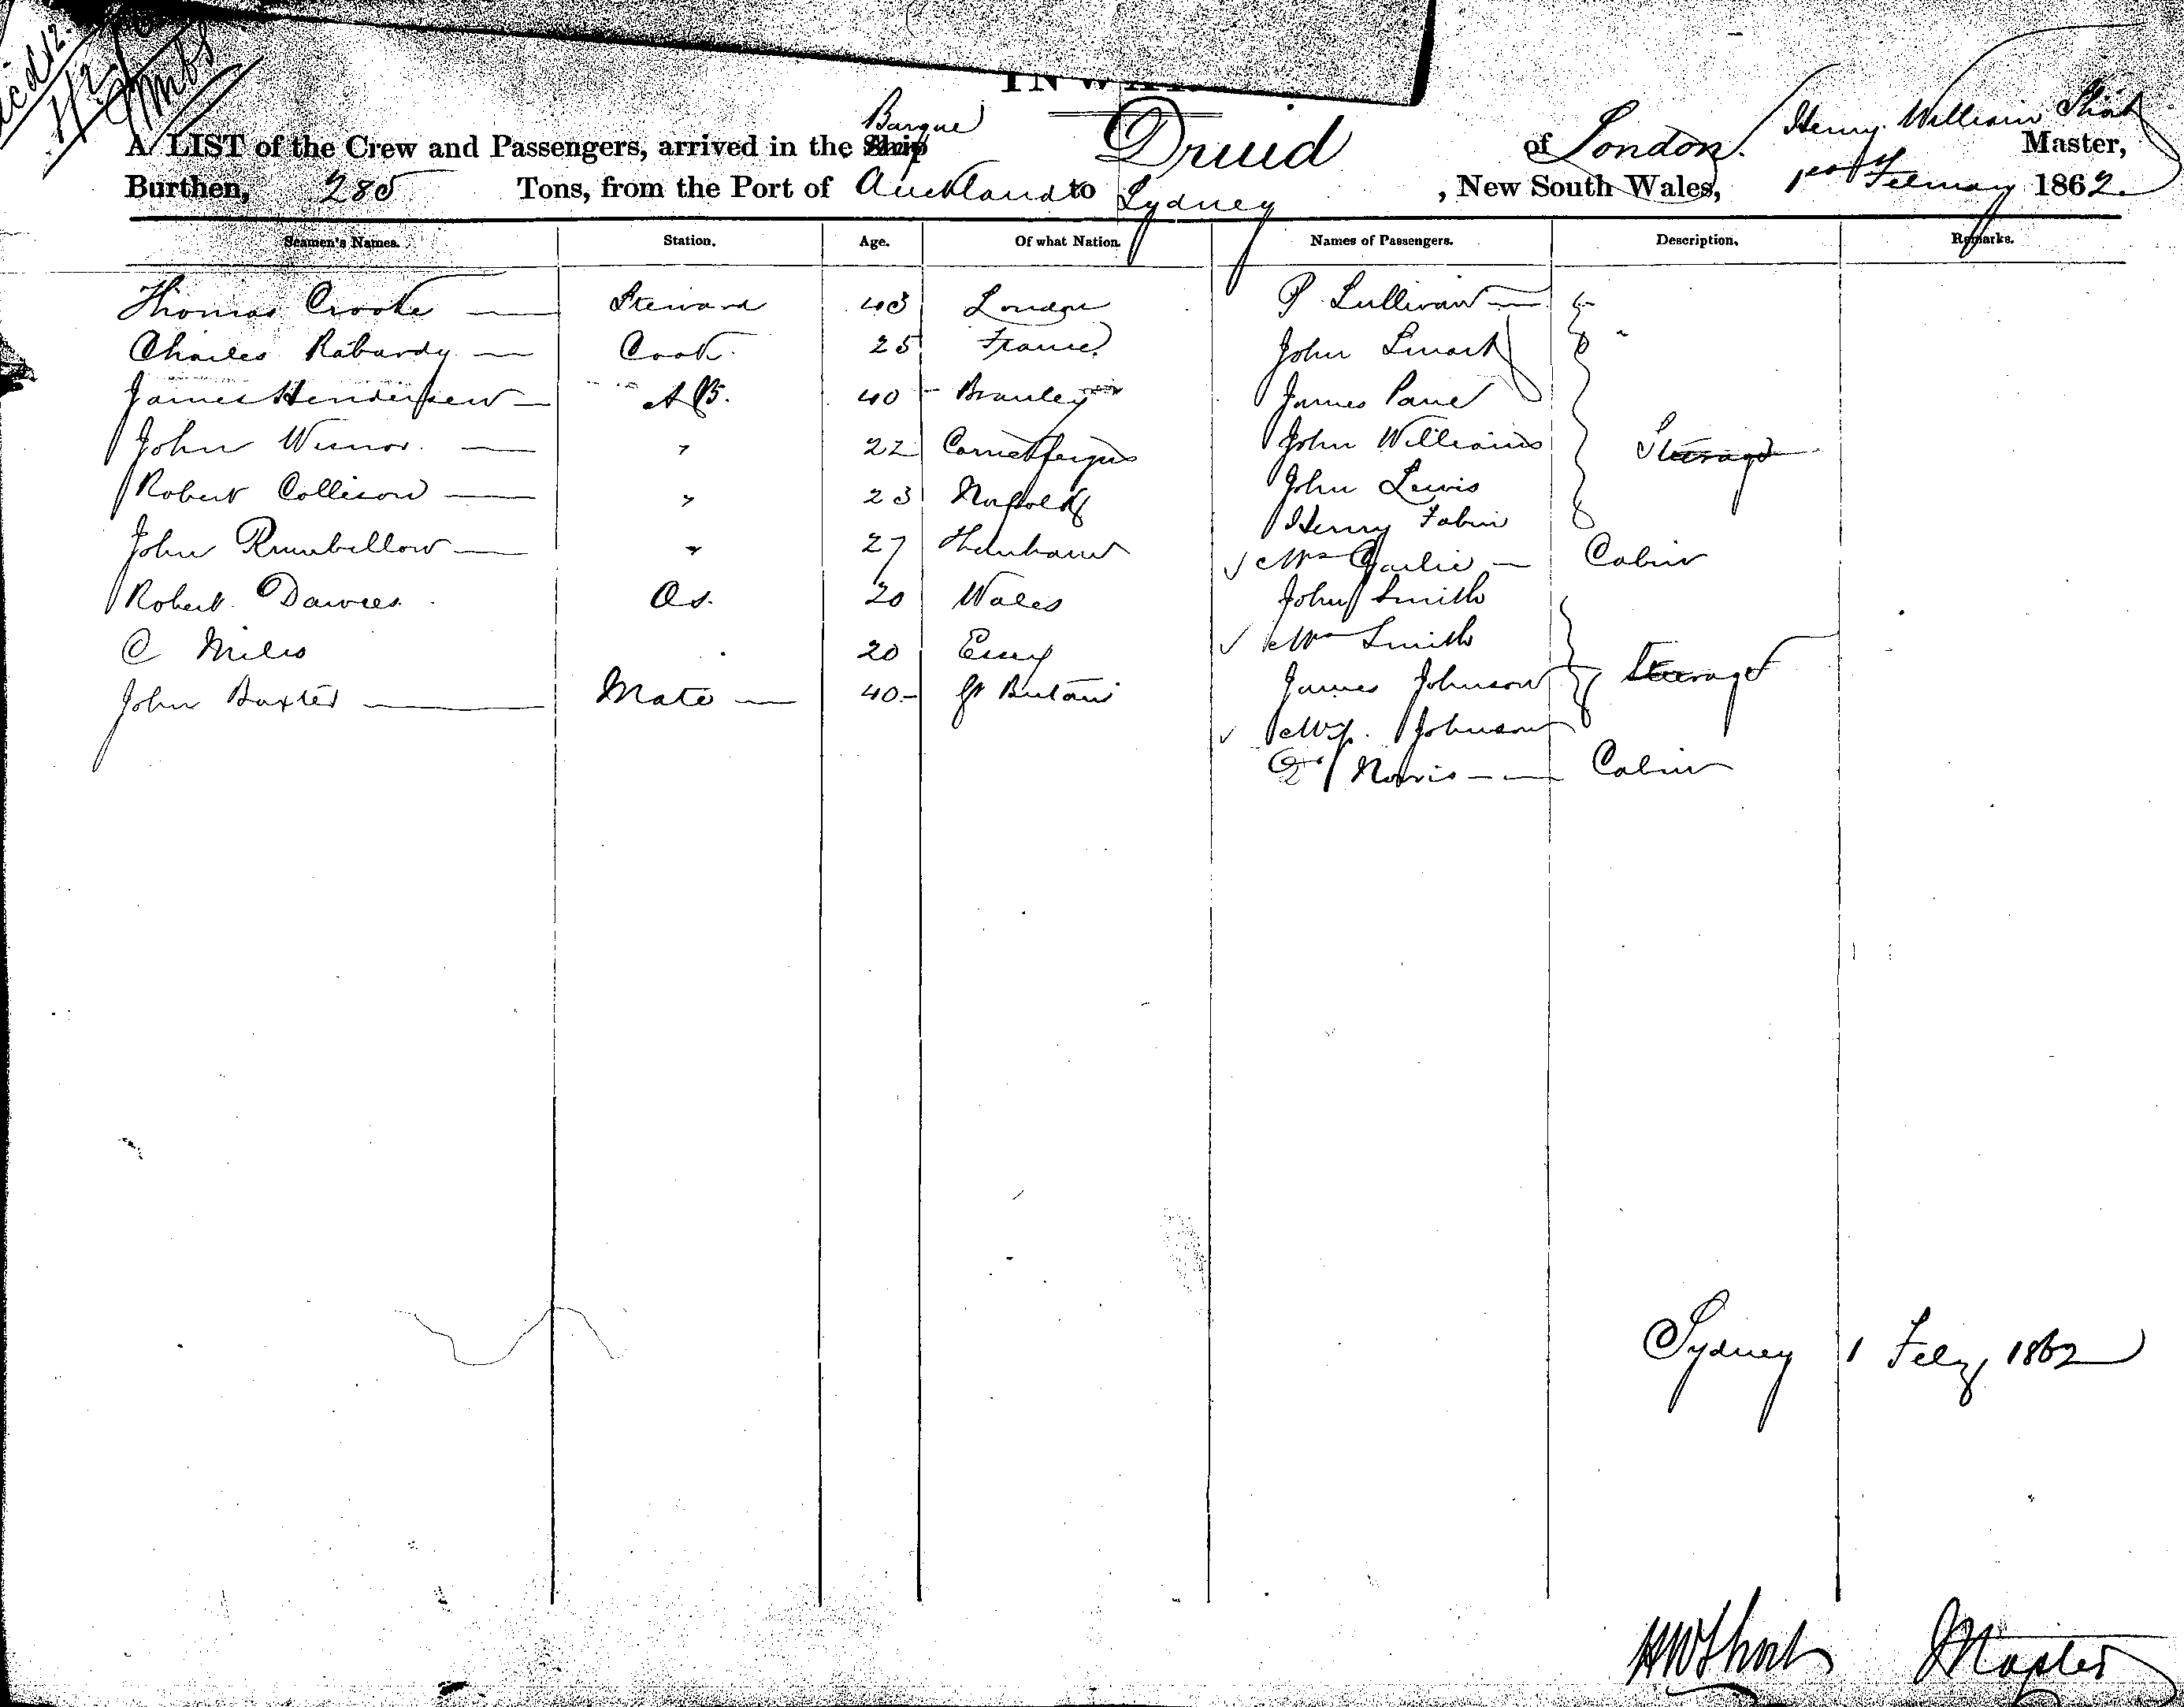 INWAR
A LIST of the Crew and Passengers, arrived in the Ship Barque Druid of London. Henry William Short Master,
Burthen, 285 Tons, from the Port of Auckland to Sydney, New South Wales, 1st February 1862.
Seamen's Names. Station. Age. Of what Nation. Names of Passengers. Description. Remarks.
Thomas Crooke Steward 43 London P. Sullivan
Charles Rabardy Cook. 25 France John Smart "
James Hendersen AB. 40 James Pane
John 22 John Williams Steerage
Robert Collison " 23 Norfolk John Lewis
John Rumbellow " 27 Henry
Mrs Cabin
Robert Davies Os. 20 Wales John Smith
C Miles 20 Essex Mrs Smith
John Baxter Mate 40 Gt Britain James Johnson Steerage
Johnson
Norris Cabin
Sydney 1 Feby 1862
HWShort Master